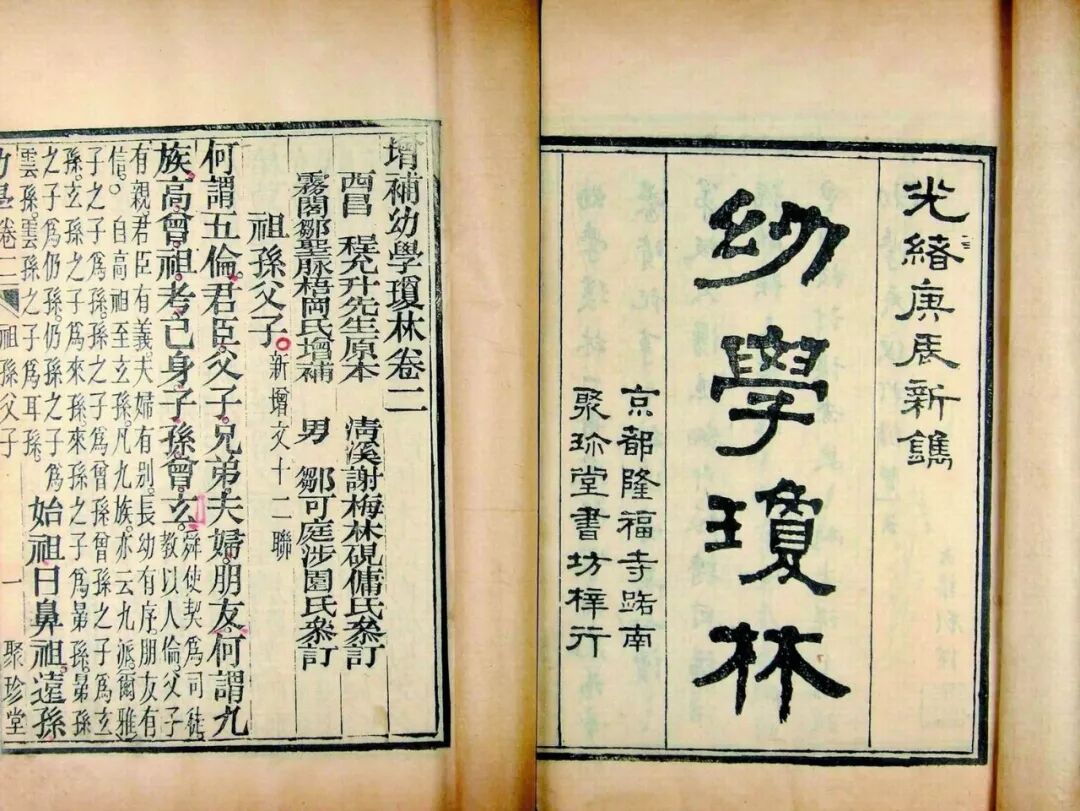 光緒庚辰新鐫
幼學瓊林
京都隆福寺路南
聚珍堂書坊梓行
增補幼學瓊林卷二
西昌 程允升先生原本 清溪謝梅林硯傭氏叅訂
霧閣鄒聖脈梧岡氏增補 男 鄒可庭涉園氏叅訂
祖孫父子。新增文十二聯
何謂五倫。君臣。父子。兄弟。夫婦。朋友。何謂九
族。高曾祖。考己身子。孫曾玄。
舜使契爲司徒。
教以人倫。父子
有親。君臣有義。夫婦有別。長幼有序。朋友有
信。自高祖至玄孫。凡九族。亦云九派。爾雅
子之子爲孫。孫之子爲曾孫。曾孫之子爲玄
孫。玄孫之子爲來孫。來孫之子爲晜孫。晜孫
之子爲仍孫。仍孫之子爲
雲孫。雲孫之子爲耳孫。
始祖曰鼻祖。遠孫
幼學卷二 祖孫父子 一 聚珍堂